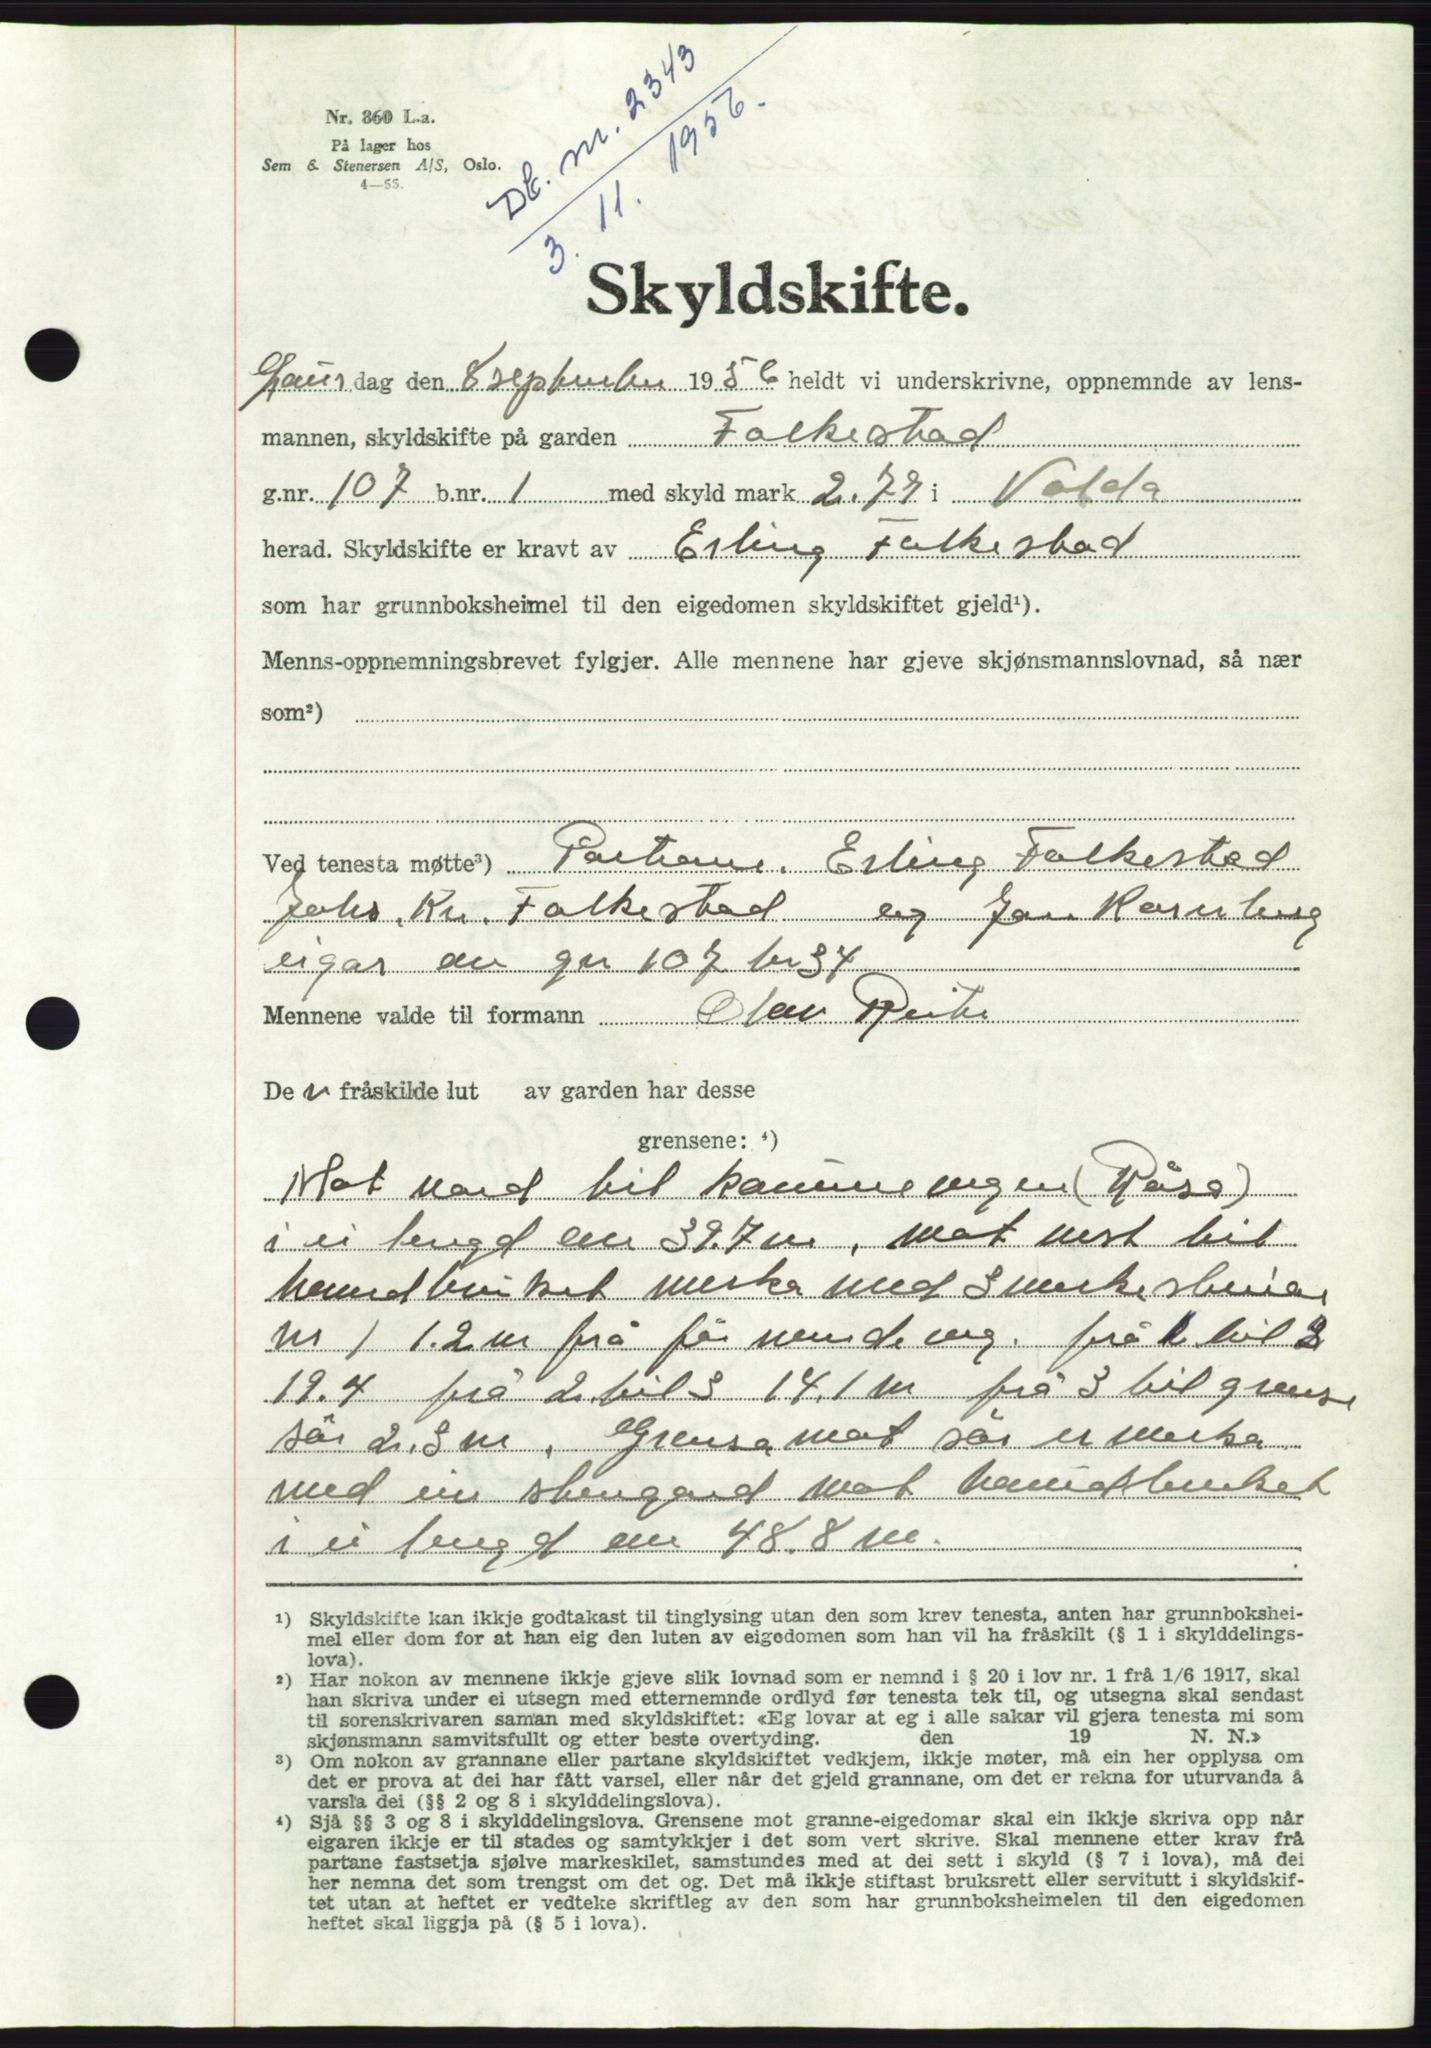 Nr. 360 L.a.
På lager hos
Sem & Stenersen A/S, Oslo.
4—55.
Db. nr. 2343
3. 11. 1956.
Skyldskifte.
Laurdag den 8 september 1956 heldt vi underskrivne, oppnemnde av lens-
mannen, skyldskifte på garden Folkestad
g.nr. 107 b.nr. 1 med skyld mark 2.77 i Volda
herad. Skyldskifte er kravt av Erling Folkestad
som har grunnboksheimel til den eigedomen skyldskiftet gjeld¹).
Menns-oppnemningsbrevet fylgjer. Alle mennene har gjeve skjønsmannslovnad, så nær
som²)
Ved tenesta møtte³) Partane. Erling Folkestad
Johs. Kr. Folkestad og Jan Rosenberg
eigar av gnr 107 bnr 34
Mennene valde til formann Olav Reite
De n fråskilde lut av garden har desse
grensene: ⁴)
Mot nord til kommunevegen (Råsa)
i ei lengd av 39.7 m, mot vest til
hamnebruket merka med 3 merkesteinar
nr 1 1.2 m frå før nemnde veg. frå 1 til 2
19.4 frå 2 til 3 14.1 m frå 3 til grensa
sør 2.3 m. Grensa mot sør er merka
med ein steingard mot
i ei lengd av 48.8 m.
¹) Skyldskifte kan ikkje godtakast til tinglysing utan den som krev tenesta, anten har grunnbokshei-
mel eller dom for at han eig den luten av eigedomen som han vil ha fråskilt (§ 1 i skylddelings-
lova).
²) Har nokon av mennene ikkje gjeve slik lovnad som er nemnd i § 20 i lov nr. 1 frå 1/6 1917, skal
han skriva under ei utsegn med etternemnde ordlyd før tenesta tek til, og utsegna skal sendast
til sorenskrivaren saman med skyldskiftet: «Eg lovar at eg i alle sakar vil gjera tenesta mi som
skjønsmann samvitsfullt og etter beste overtyding. den 19 N. N.»
³) Om nokon av grannane eller partane skyldskiftet vedkjem, ikkje møter, må ein her opplysa om
det er prova at dei har fått varsel, eller når det gjeld grannane, om det er rekna for uturvanda å
varsla dei (§§ 2 og 8 i skylddelingslova).
⁴) Sjå §§ 3 og 8 i skylddelingslova. Grensene mot granne-eigedomar skal ein ikkje skriva opp når
eigaren ikkje er til stades og samtykkjer i det som vert skrive. Skal mennene etter krav frå
partane fastsetja sjølve markeskilet, samstundes med at dei sett i skyld (§ 7 i lova), må dei
her nemna det som trengst om det og. Det må ikkje stiftast bruksrett eller servitutt i skyldskif-
tet utan at heftet er vedteke skriftleg av den som har grunnboksheimelen til den eigedomen
heftet skal liggja på (§ 5 i lova).